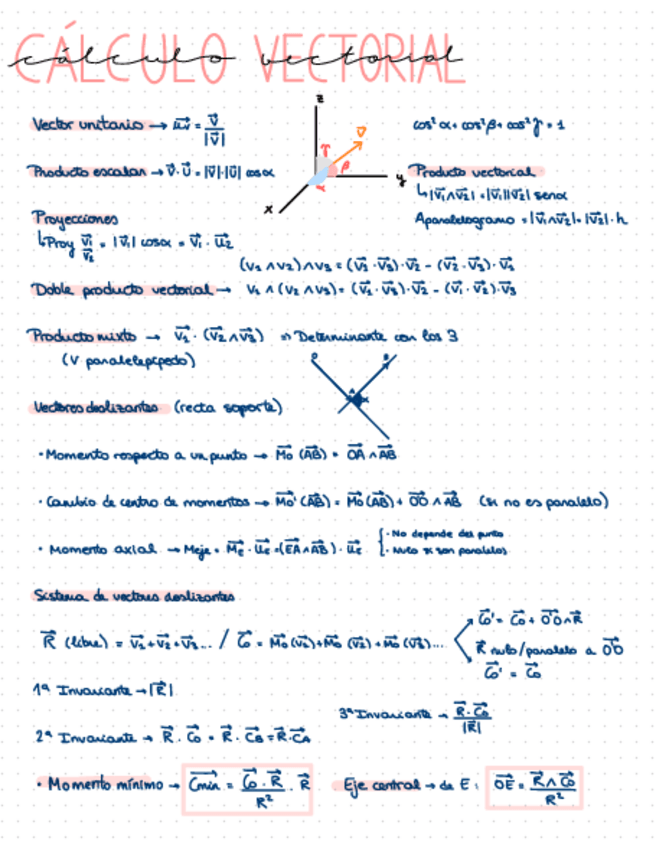 CÁLCULO VECTORIAL
cálculo vectorial
Vector unitario → u⃗v = v⃗ / |v⃗|
z
v⃗
γ
β
α
y
x
cos²α + cos²β + cos²γ = 1
Producto escalar → v⃗ · u⃗ = |v⃗|·|u⃗| cosα
Producto vectorial
↳ |v⃗1∧v⃗2| = |v⃗1||v⃗2| senα
Aparalelogramo = |v⃗1∧v⃗2| = |v⃗2| · h
Proyecciones
↳ Proy v⃗1 v⃗2 = |v⃗1| cosα = v⃗1 · u⃗2
(v1 ∧ v2) ∧ v3 = (v⃗1 · v⃗3) · v⃗2 − (v⃗2 · v⃗3) · v⃗1
Doble producto vectorial → v1 ∧ (v2 ∧ v3) = (v⃗1 · v⃗3) · v⃗2 − (v⃗1 · v⃗2) · v⃗3
Producto mixto → v⃗1 · (v⃗2 ∧ v⃗3) ⇒ Determinante con los 3
(V paralelepípedo)
Vectores deslizantes (recta soporte)
· Momento respecto a un punto → M⃗o (A⃗B) = O⃗A ∧ A⃗B
· Cambio de centro de momentos → M⃗o' (A⃗B) = M⃗o (A⃗B) + O⃗'O ∧ A⃗B (si no es paralelo)
· Momento axial → Meje = M⃗E · u⃗E = (E⃗A ∧ A⃗B) · u⃗E
· No depende del punto
· Nulo si son paralelos
Sistema de vectores deslizantes
R⃗ (libre) = v⃗1 + v⃗2 + v⃗3 ... / C⃗o = M⃗o (v⃗1) + M⃗o (v⃗2) + M⃗o (v⃗3) ...
C⃗o' = C⃗o + O⃗'O ∧ R⃗
R⃗ nulo/paralelo a O⃗'O
C⃗o' = C⃗o
1ª Invariante → |R⃗|
3ª Invariante → R⃗ · C⃗o / |R⃗|
2ª Invariante → R⃗ · C⃗o = R⃗ · C⃗B = R⃗ · C⃗A
· Momento mínimo → C⃗min = C⃗o · R⃗ / R² · R⃗
Eje central → da E : O⃗E = R⃗ ∧ C⃗o / R²